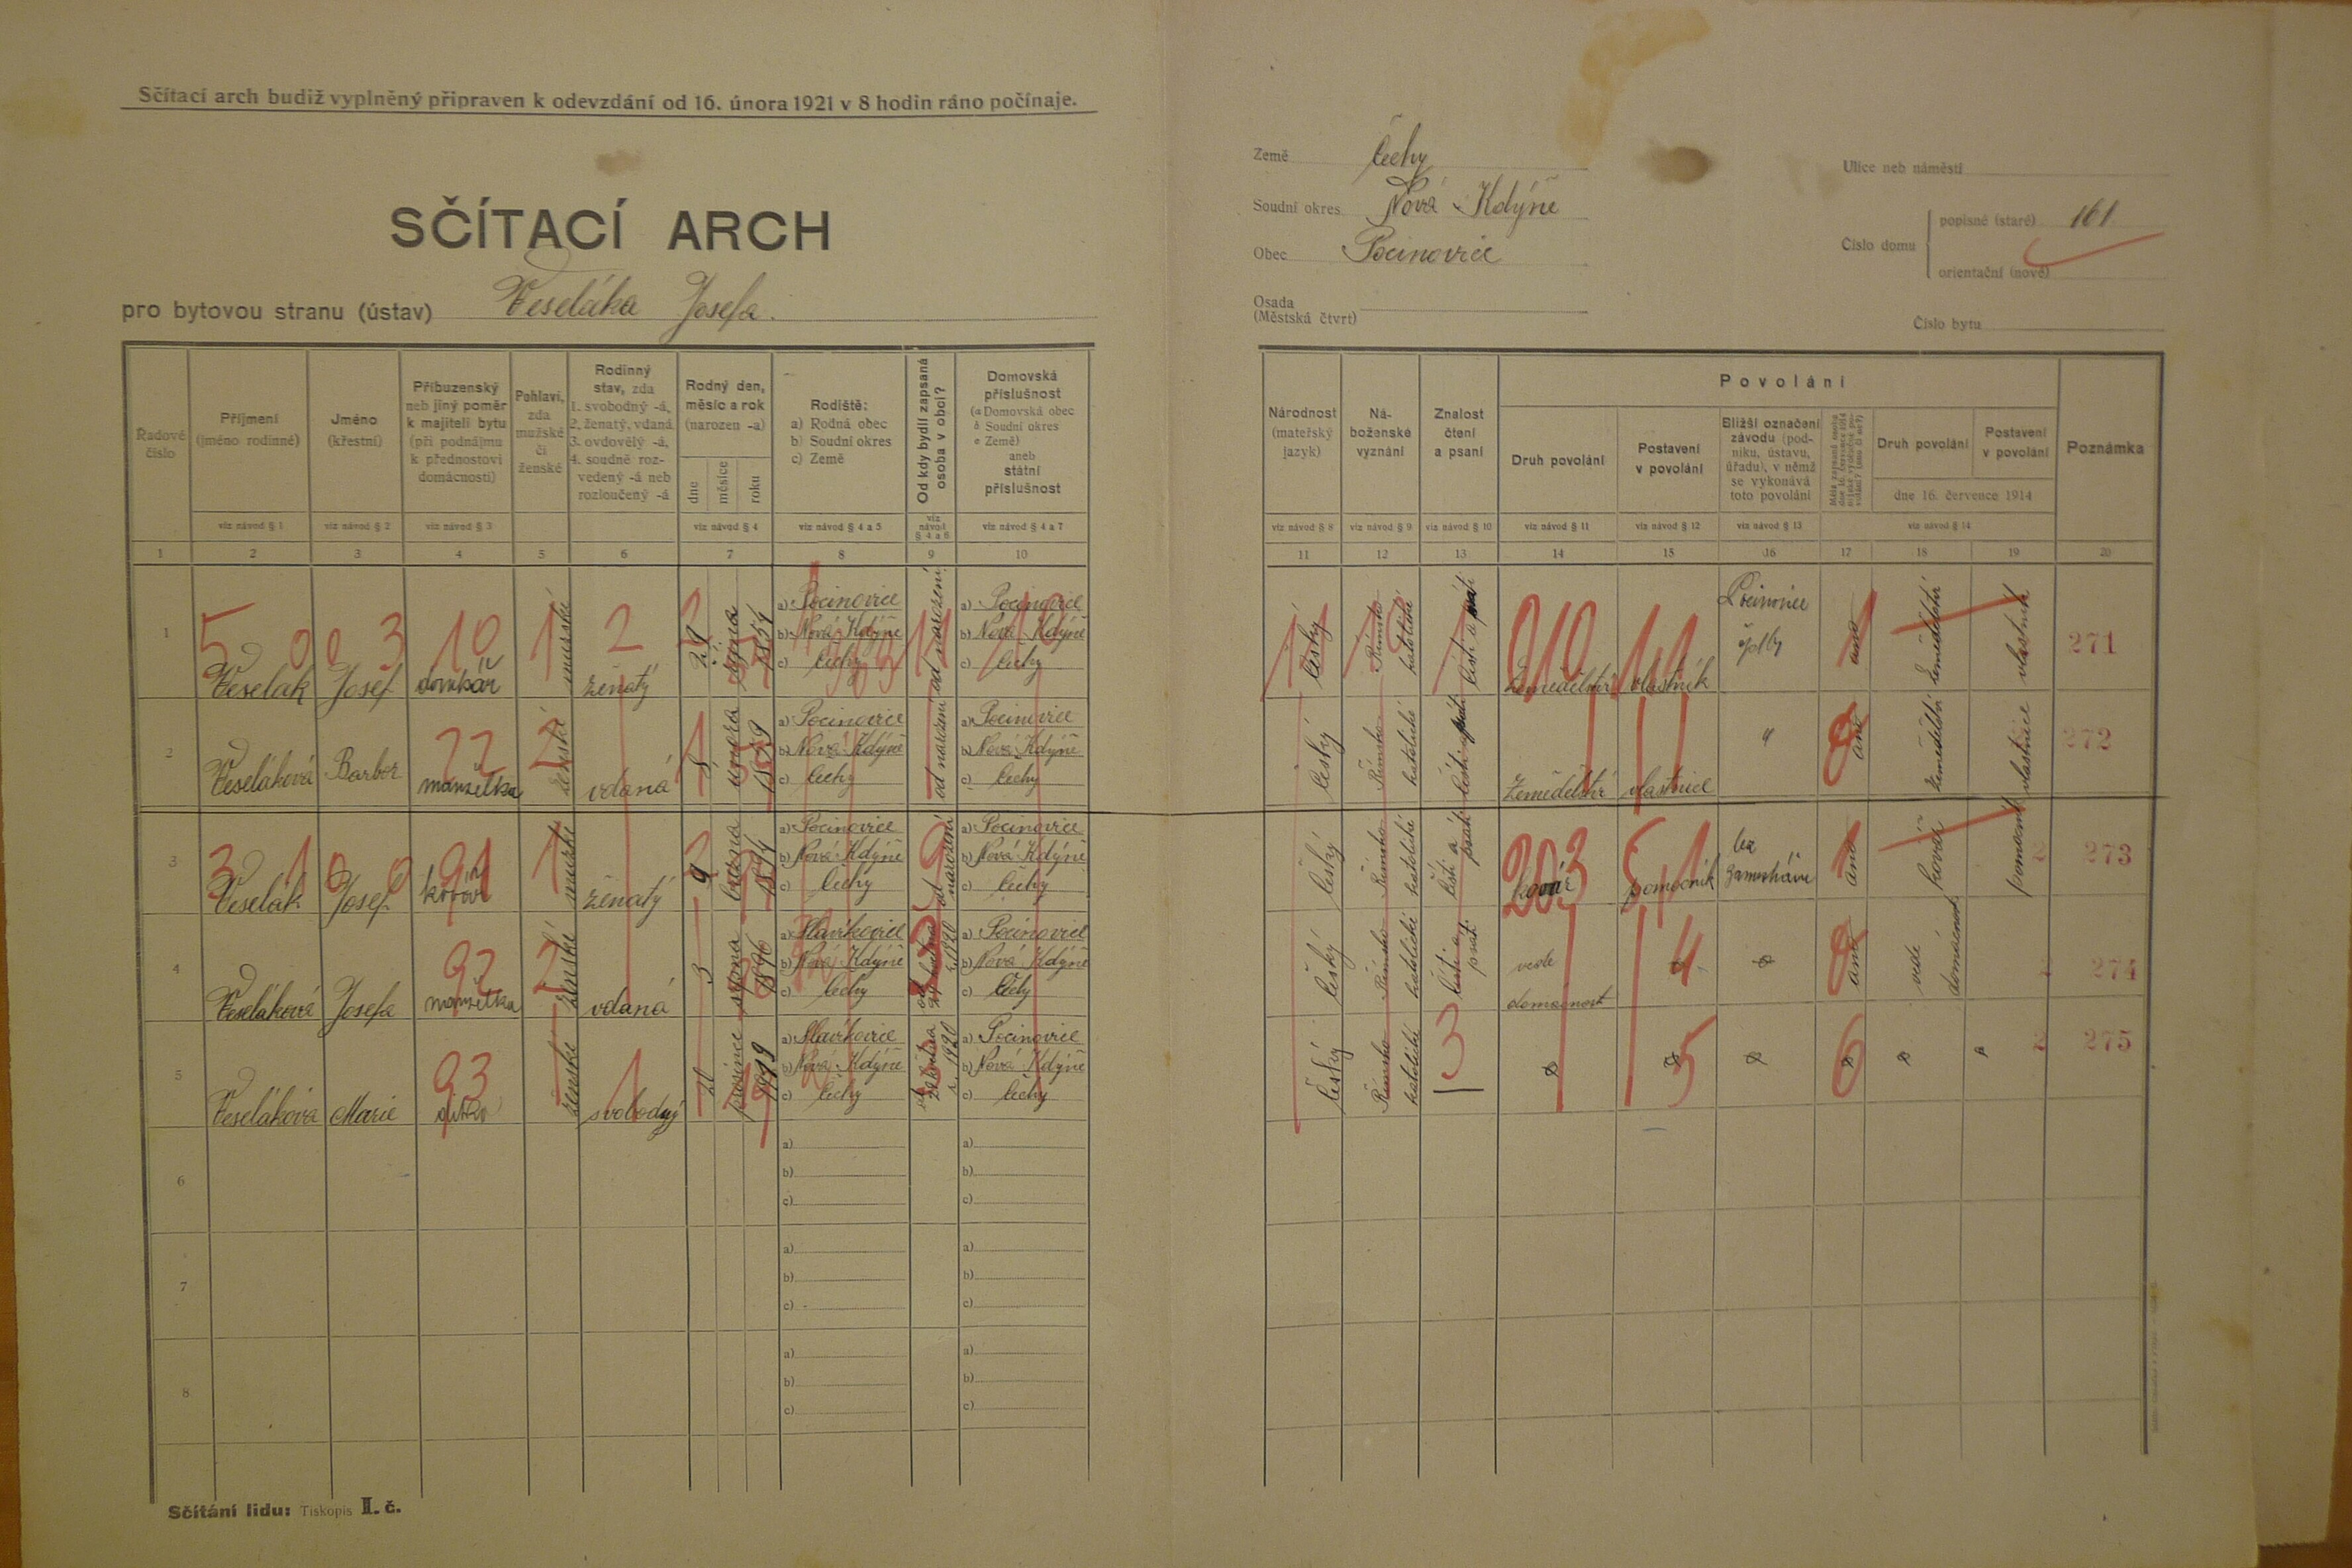 Sčítací arch budiž vyplněný připraven k odevzdání od 16. února 1921 v 8 hodin ráno počínaje.
SČÍTACÍ ARCH
pro bytovou stranu (ústav) Veseláka Josefa.
Země Čechy
Soudní okres Nová Kdýně
Obec Pocinovice
Osada
(Městská čtvrť)
Ulice neb náměstí
Číslo domu
popisné (staré) 161
orientační (nové)
Číslo bytu
Řadové číslo
Příjmení (jméno rodinné)
Jméno (křestní)
Příbuzenský neb jiný poměr k majiteli bytu (při podnájmu k přednostovi domácnosti)
Pohlaví, zda mužské či ženské
Rodinný stav, zda 1. svobodný -á, 2. ženatý, vdaná 3. ovdovělý -á, 4. soudně rozvedený -á neb rozloučený -á
Rodný den, měsíc a rok (narozen -a)
dne měsíce roku
Rodiště: a) Rodná obec b) Soudní okres c) Země
Od kdy bydlí zapsaná osoba v obci?
Domovská příslušnost (a Domovská obec b Soudní okres c Země) aneb státní příslušnost
Národnost (mateřský jazyk)
Náboženské vyznání
Znalost čtení a psaní
Povolání
Druh povolání
Postavení v povolání
Bližší označení závodu (podniku, ústavu, úřadu), v němž se vykonává toto povolání
Druh povolání
Postavení v povolání
dne 16. července 1914
Poznámka
viz návod § 1 viz návod § 2 viz návod § 3 viz návod § 4 viz návod § 4 a 5 viz návod § 4 a 6 viz návod § 4 a 7 viz návod § 8 viz návod § 9 viz návod § 10 viz návod § 11 viz návod § 12 viz návod § 13 viz návod § 14
1 2 3 4 5 6 7 8 9 10 11 12 13 14 15 16 17 18 19 20
1 Veselák Josef domkář mužské ženatý 29 a) Pocinovice b) Nová Kdýně c) Čechy od narození a) Pocinovice b) Nová Kdýně c) Čechy český Římsko katolické čísti a psáti Zemědělství vlastník Pocinovice ano Zemědělství vlastník 271
2 Veseláková Barbor manželka ženské vdaná února 1859 a) Pocinovice b) Nová Kdýně c) Čechy od narození a) Pocinovice b) Nová Kdýně c) Čechy český Římsko katolické čísti psáti Zemědělství vlastnice " ano Zemědělství vlastnice 272
3 Veselák Josef kovář mužské ženatý 9 března 1894 a) Pocinovice b) Nová Kdýně c) Čechy od narození a) Pocinovice b) Nová Kdýně c) Čechy český Římsko katolické čísti a psáti kovář pomocník ano kovář pomocník 273
4 Veseláková Josefa manželka ženské vdaná 3 srpna 1896 a) Slavíkovice b) Nová Kdýně c) Čechy 1920 a) Pocinovice b) Nová Kdýně c) Čechy český Římsko katolické čísti a psáti vede domácnost ano vede domácnost 274
5 Veseláková Marie dítko ženské svobodný prosince 1919 a) Slavíkovice b) Nová Kdýně c) Čechy 1920 a) Pocinovice b) Nová Kdýně c) Čechy český Římsko katolické 275
6 a) b) c) a) b) c)
7 a) b) c) a) b) c)
8 a) b) c) a) b) c)
Sčítání lidu: Tiskopis II. č.